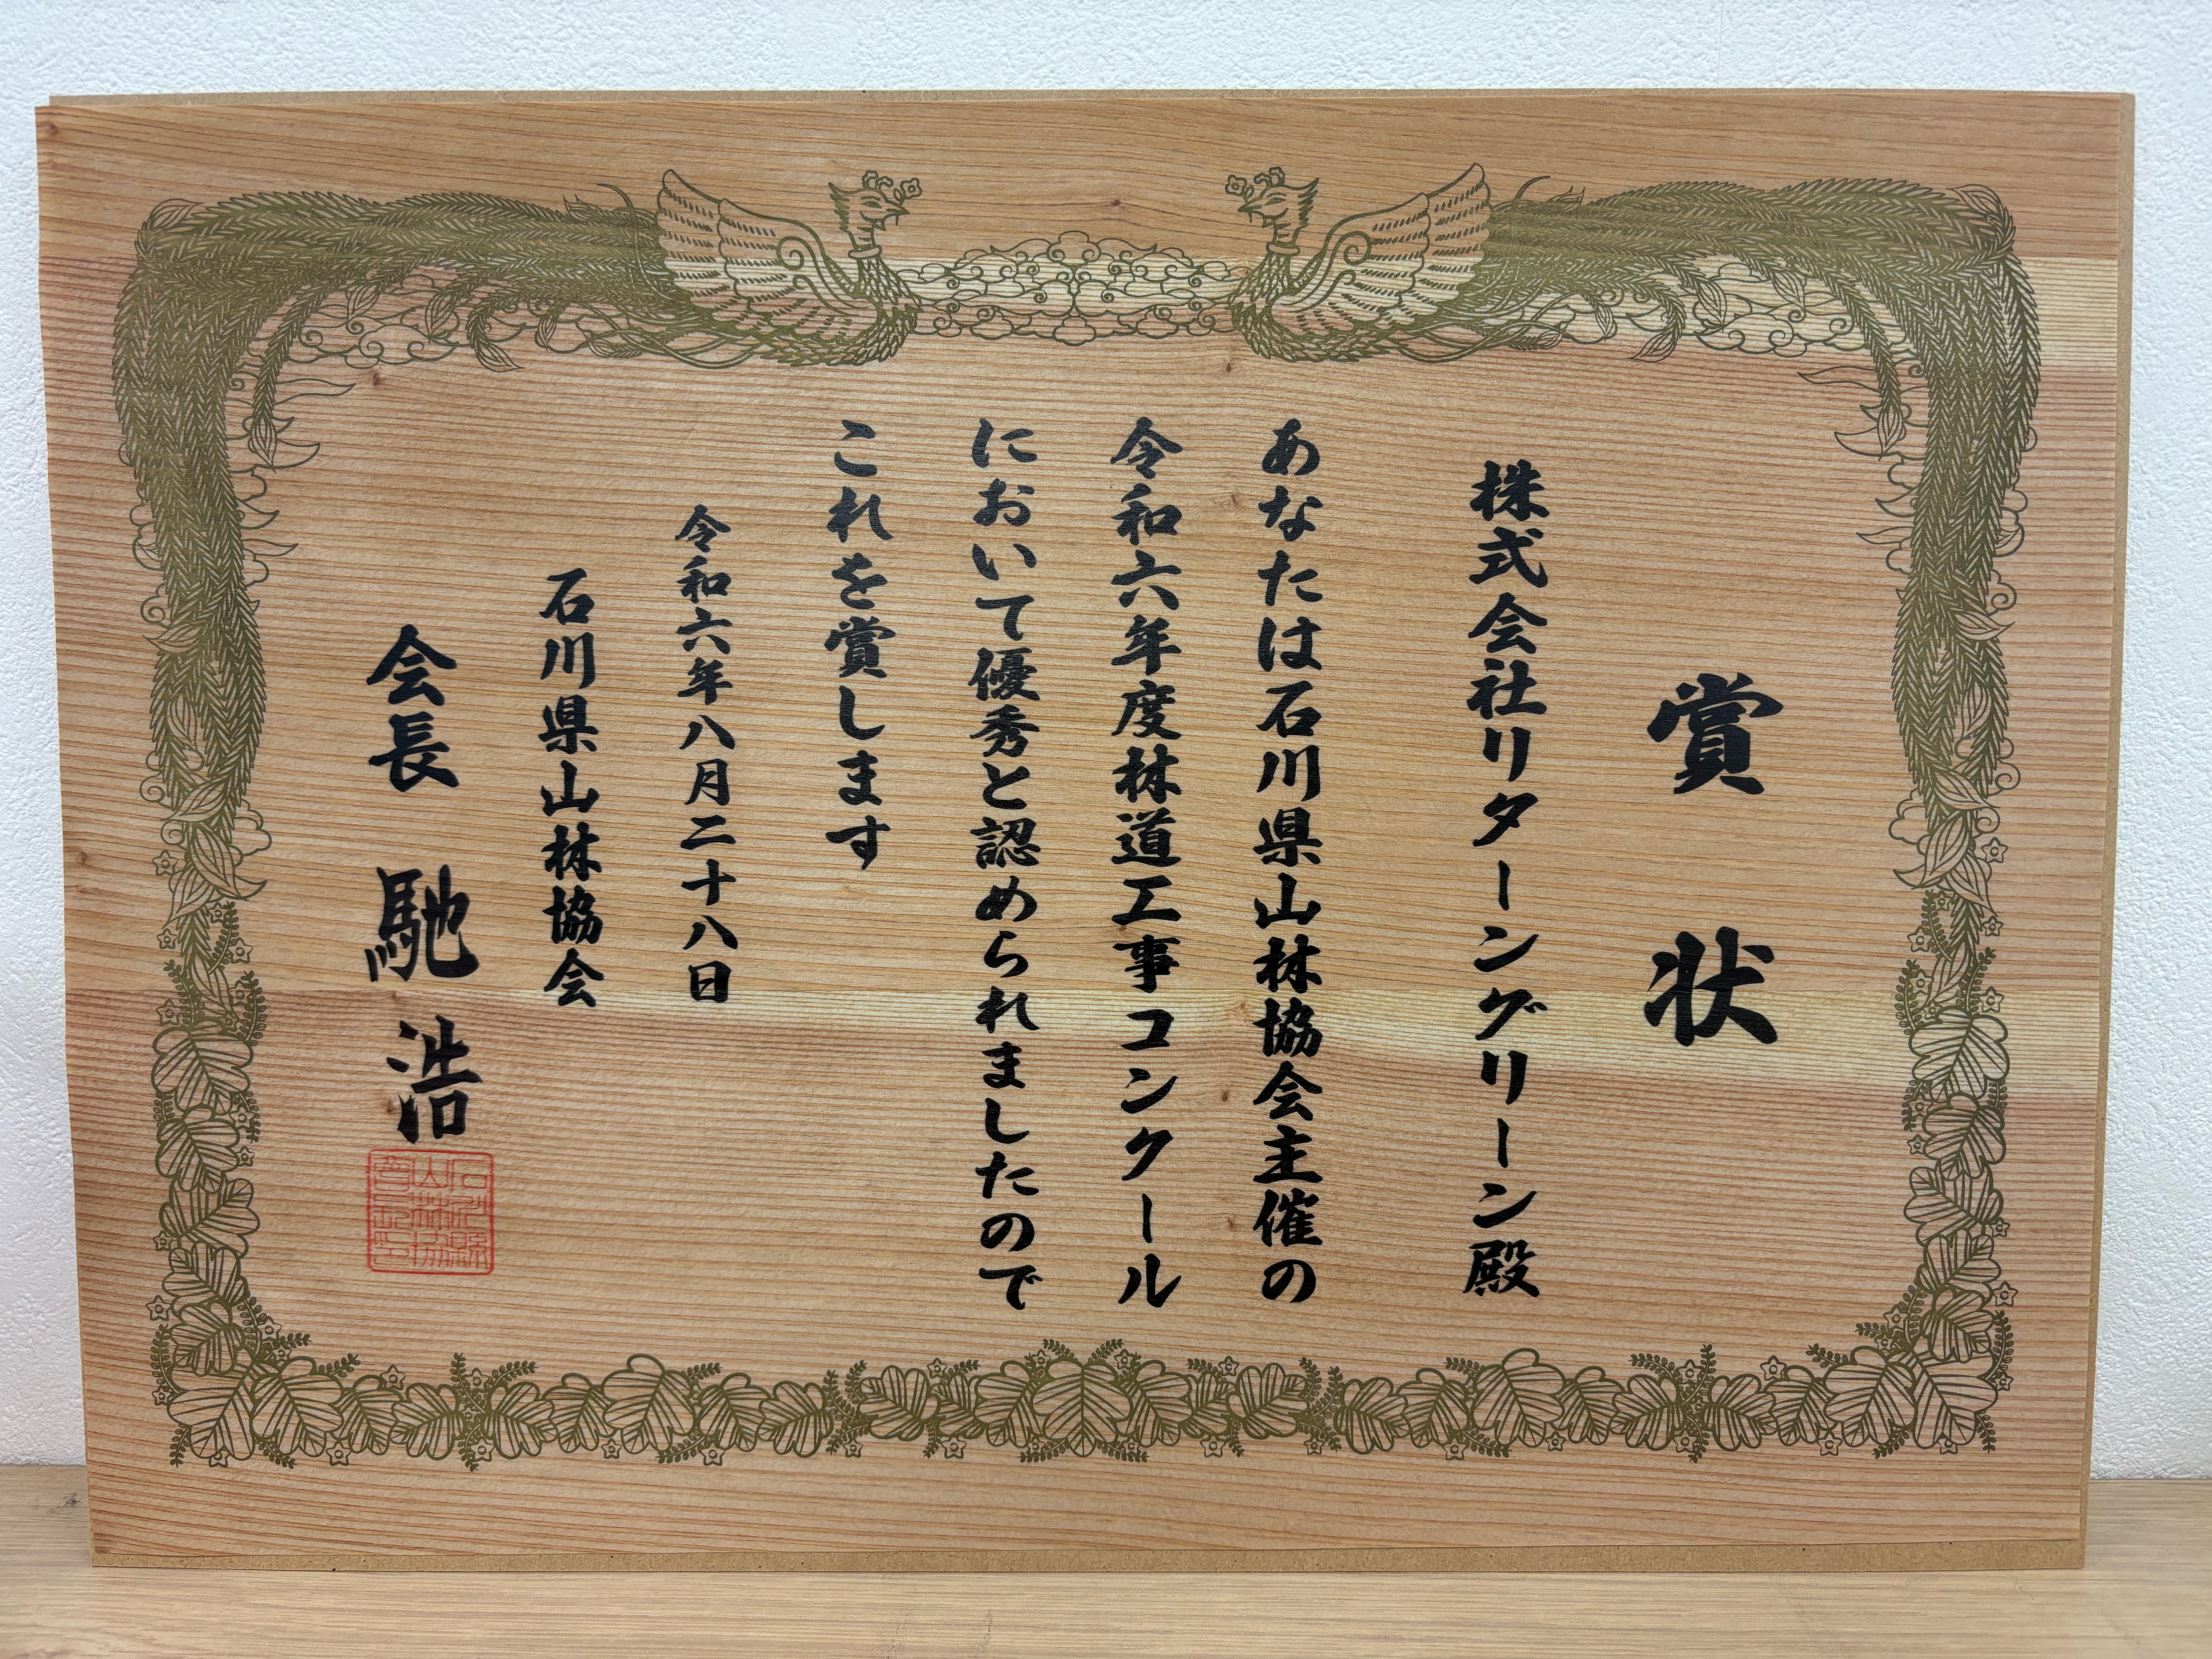 賞状
株式会社リターングリーン殿
あなたは石川県山林協会主催の
令和六年度林道工事コンクール
において優秀と認められましたので
これを賞します
令和六年八月二十八日
石川県山林協会
会長 馳浩